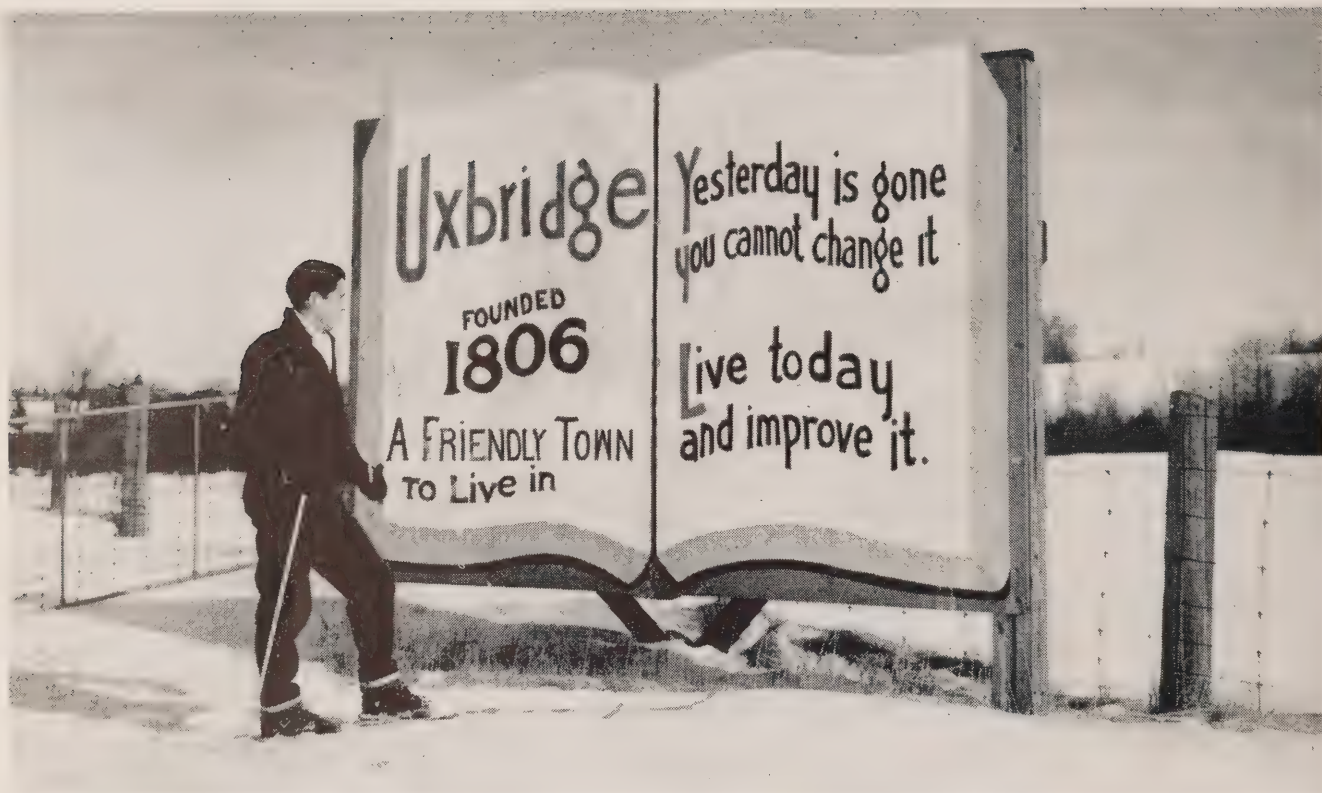 Uxbridge
FOUNDED
1806
A FRiENDLY TOWN
To Live in
Yesterday is gone
you cannot change it
Live today
and improve it.